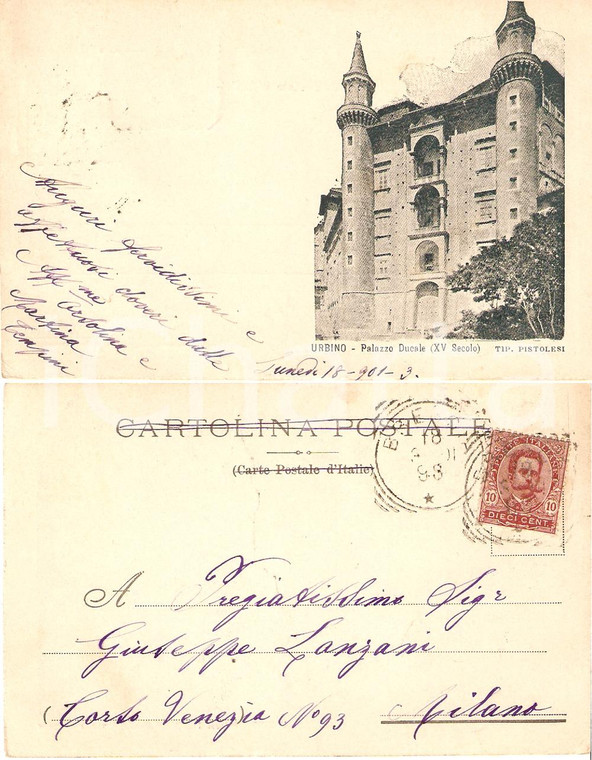 Auguri fervidissimi e
affettuosi doveri dalle
Aff.me Carolina e
Marina
URBINO - Palazzo Ducale (XV Secolo) TIP. PISTOLESI
Lunedì 18-901-3.
CARTOLINA POSTALE
(Carte Postale d'Italie)
10 10
DIECI CENT.
A Pregiatissimo Sigr
Giuseppe Lanzani
(Corso Venezia No 93 Milano